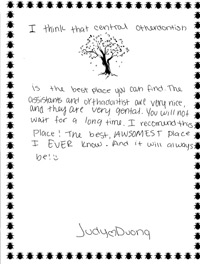 I think that central othordontist
is the best place you can find. The
assistants and orthodontist are very nice,
and they are very gental. You will not
wait for a long time. I recomend this
Place! The best, AWSOMEST place
I EVER know. And it will always
be!
Judy Duong